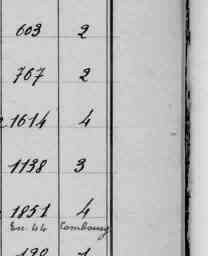 603 2
767 2
1614 4
1138 3
1851 4
En. 44 Combourg
190 1